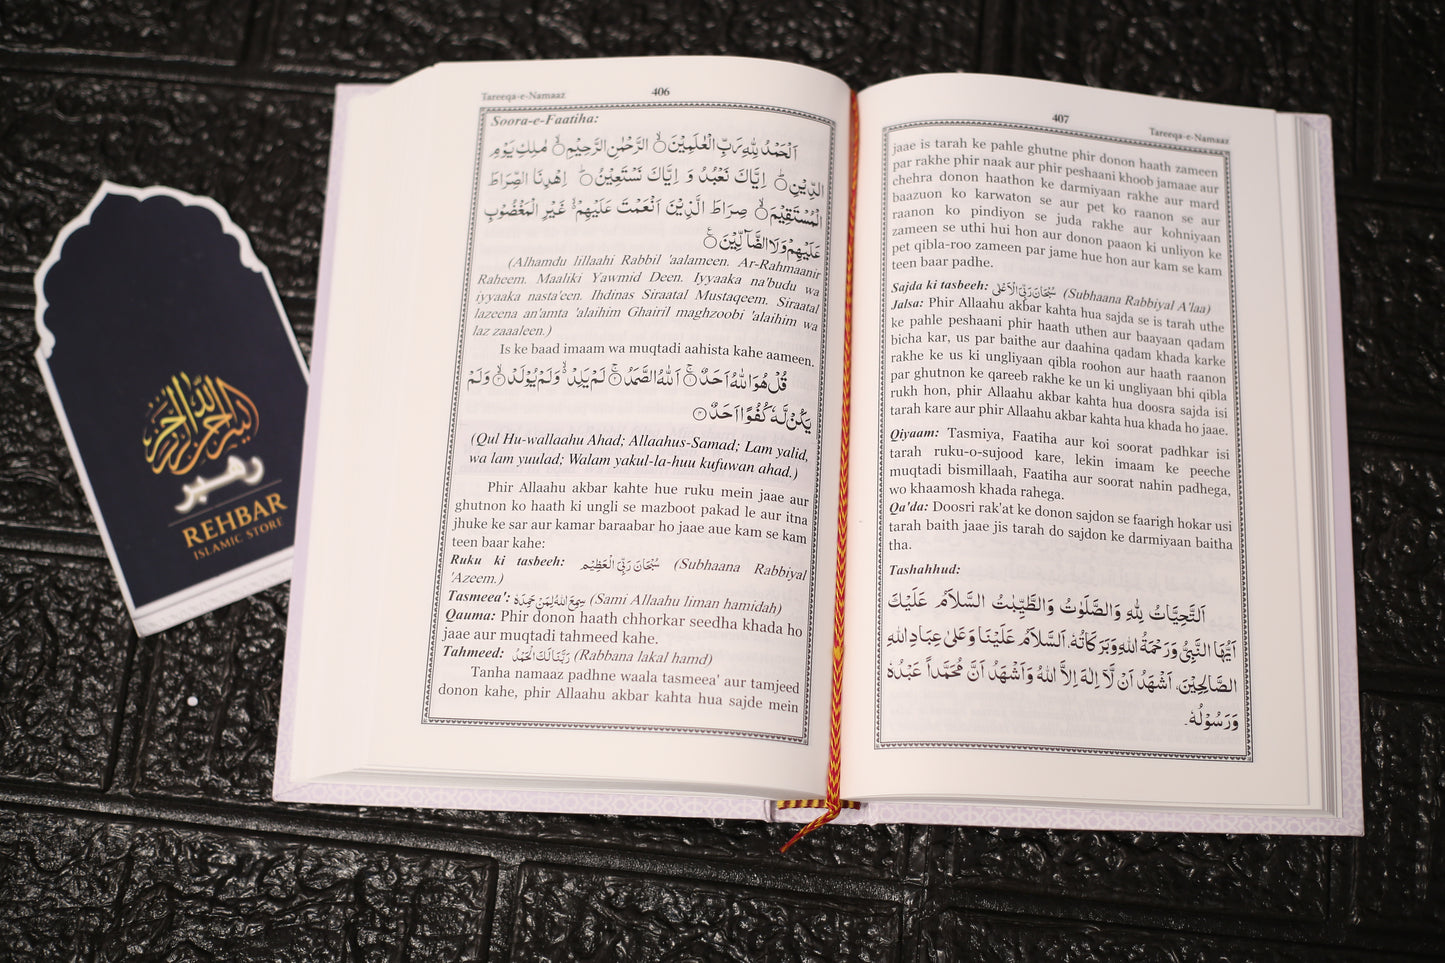 Tareeqa-e-Namaaz 406
Soora-e-Faatiha:
اَلْحَمْدُ لِلّٰهِ رَبِّ الْعٰلَمِيْنَ ۙ الرَّحْمٰنِ الرَّحِيْمِ ۙ مٰلِكِ يَوْمِ
الدِّيْنِ ؕ اِيَّاكَ نَعْبُدُ وَ اِيَّاكَ نَسْتَعِيْنُ ؕ اِهْدِنَا الصِّرَاطَ
الْمُسْتَقِيْمَ ۙ صِرَاطَ الَّذِيْنَ اَنْعَمْتَ عَلَيْهِمْ ۙ غَيْرِ الْمَغْضُوْبِ
عَلَيْهِمْ وَلَا الضَّآلِّيْنَ
(Alhamdu lillaahi Rabbil 'aalameen. Ar-Rahmaanir
Raheem. Maaliki Yawmid Deen. Iyyaaka na'budu wa
iyyaaka nasta'een. Ihdinas Siraatal Mustaqeem. Siraatal
lazeena an'amta 'alaihim Ghairil maghzoobi 'alaihim wa
laz zaaaleen.)
Is ke baad imaam wa muqtadi aahista kahe aameen.
قُلْ هُوَ اللّٰهُ اَحَدٌ ۚ اَللّٰهُ الصَّمَدُ ۚ لَمْ يَلِدْ ۙ وَلَمْ يُوْلَدْ ۙ وَلَمْ
يَكُنْ لَّهٗ كُفُوًا اَحَدٌ
(Qul Hu-wallaahu Ahad; Allaahus-Samad; Lam yalid,
wa lam yuulad; Walam yakul-la-huu kufuwan ahad.)
Phir Allaahu akbar kahte hue ruku mein jaae aur
ghutnon ko haath ki ungli se mazboot pakad le aur itna
jhuke ke sar aur kamar baraabar ho jaae aue kam se kam
teen baar kahe:
Ruku ki tasbeeh: سُبْحَانَ رَبِّيَ الْعَظِيْمِ (Subhaana Rabbiyal
'Azeem.)
Tasmeea': سَمِعَ اللّٰهُ لِمَنْ حَمِدَهٗ (Sami Allaahu liman hamidah)
Qauma: Phir donon haath chhorkar seedha khada ho
jaae aur muqtadi tahmeed kahe.
Tahmeed: رَبَّنَا لَكَ الْحَمْدُ (Rabbana lakal hamd)
Tanha namaaz padhne waala tasmeea' aur tamjeed
donon kahe, phir Allaahu akbar kahta hua sajde mein
407 Tareeqa-e-Namaaz
jaae is tarah ke pahle ghutne phir donon haath zameen
par rakhe phir naak aur phir peshaani khoob jamaae aur
chehra donon haathon ke darmiyaan rakhe aur mard
baazuon ko karwaton se aur pet ko raanon se aur
raanon ko pindiyon se juda rakhe aur kohniyaan
zameen se uthi hui hon aur donon paaon ki unliyon ke
pet qibla-roo zameen par jame hue hon aur kam se kam
teen baar padhe.
Sajda ki tasbeeh: سُبْحَانَ رَبِّيَ الْاَعْلٰى (Subhaana Rabbiyal A'laa)
Jalsa: Phir Allaahu akbar kahta hua sajda se is tarah uthe
ke pahle peshaani phir haath uthen aur baayaan qadam
bicha kar, us par baithe aur daahina qadam khada karke
rakhe ke us ki ungliyaan qibla roohon aur haath raanon
par ghutnon ke qareeb rakhe ke un ki ungliyaan bhi qibla
rukh hon, phir Allaahu akbar kahta hua doosra sajda isi
tarah kare aur phir Allaahu akbar kahta hua khada ho jaae.
Qiyaam: Tasmiya, Faatiha aur koi soorat padhkar isi
tarah ruku-o-sujood kare, lekin imaam ke peeche
muqtadi bismillaah, Faatiha aur soorat nahin padhega,
wo khaamosh khada rahega.
Qa'da: Doosri rak'at ke donon sajdon se faarigh hokar usi
tarah baith jaae jis tarah do sajdon ke darmiyaan baitha
tha.
Tashahhud:
اَلتَّحِيَّاتُ لِلّٰهِ وَالصَّلَوٰتُ وَالطَّيِّبٰتُ السَّلَامُ عَلَيْكَ
اَيُّهَا النَّبِيُّ وَرَحْمَةُ اللّٰهِ وَبَرَكَاتُهٗ، اَلسَّلَامُ عَلَيْنَا وَعَلٰى عِبَادِ اللّٰهِ
الصَّالِحِيْنَ، اَشْهَدُ اَنْ لَّآ اِلٰهَ اِلَّا اللّٰهُ وَاَشْهَدُ اَنَّ مُحَمَّداً عَبْدُهٗ
وَرَسُوْلُهٗ۔
رهبر
REHBAR
ISLAMIC STORE